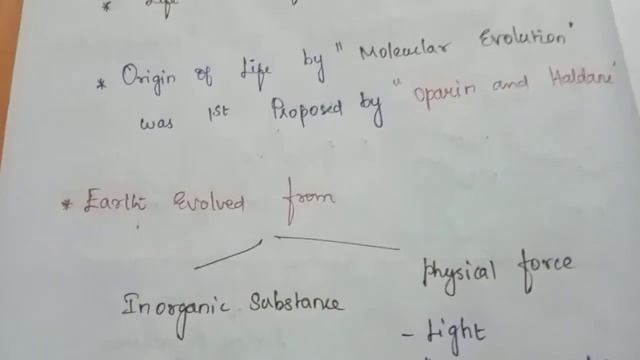 * Life of
* Origin of Life by "Molecular Evolution"
was 1st Proposed by "Oparin and Haldane"
* Earth Evolved from
Inorganic Substance
physical force
- Light